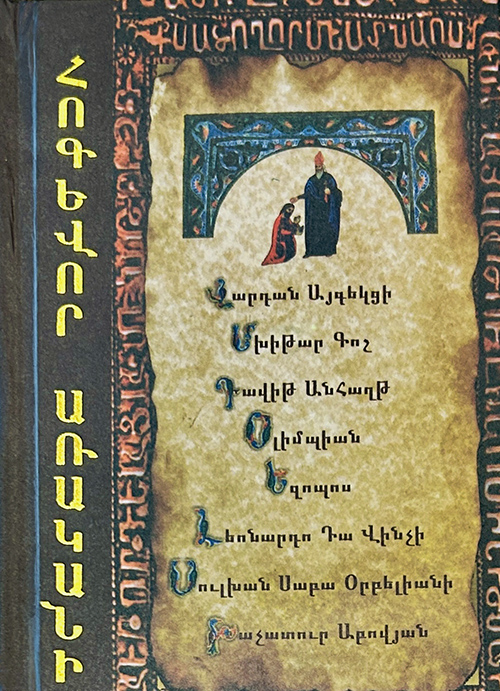 ՀՈԳԵՎՈՐ ԱՌԱԿԱՆԻ
Վարդան Այգեկցի
Մխիթար Գոչ
Դավիթ ԱնՀաղթ
Օլիմպիան
Եզոպոս
Լեոնարդո Դա Վինչի
Սուլխան Սաբա Օրբելիանի
Խաչատուր Աբովյան